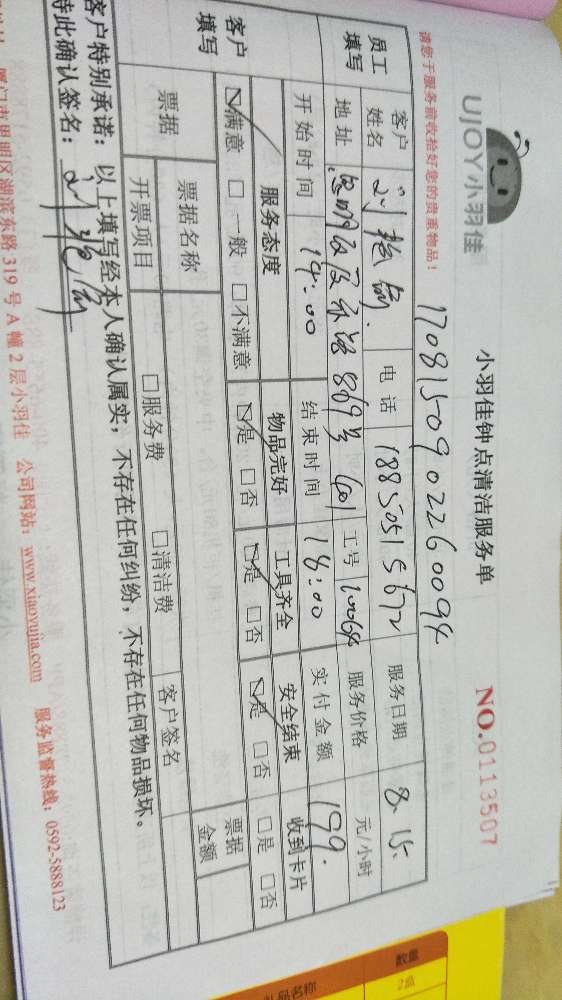 UJOY小羽佳
小羽佳钟点清洁服务单
NO.0113507
请您于服务前收拾好您的贵重物品！
1708150902260094
员工填写
客户姓名 刘艳 电话 18850515672 服务日期 8.15.
地址 869号 601 工号 服务价格 元/小时
开始时间 14:00 结束时间 18:00 实付金额 199.
客户填写
服务态度 物品完好 工具齐全 安全结束 收到卡片
☑满意 □一般 □不满意 ☑是 □否 ☑是 □否 ☑是 □否 □是 □否
票据 票据名称 票据金额
开票项目 □服务费 □清洁费 客户签名
客户特别承诺：以上填写经本人确认属实，不存在任何纠纷，不存在任何物品损坏。
特此确认签名：
厦门市思明区湖滨东路319号A幢2层小羽佳 公司网站：www.xiaoyujia.com 服务监督热线：0592-5888123
数量
礼品名称
2盒